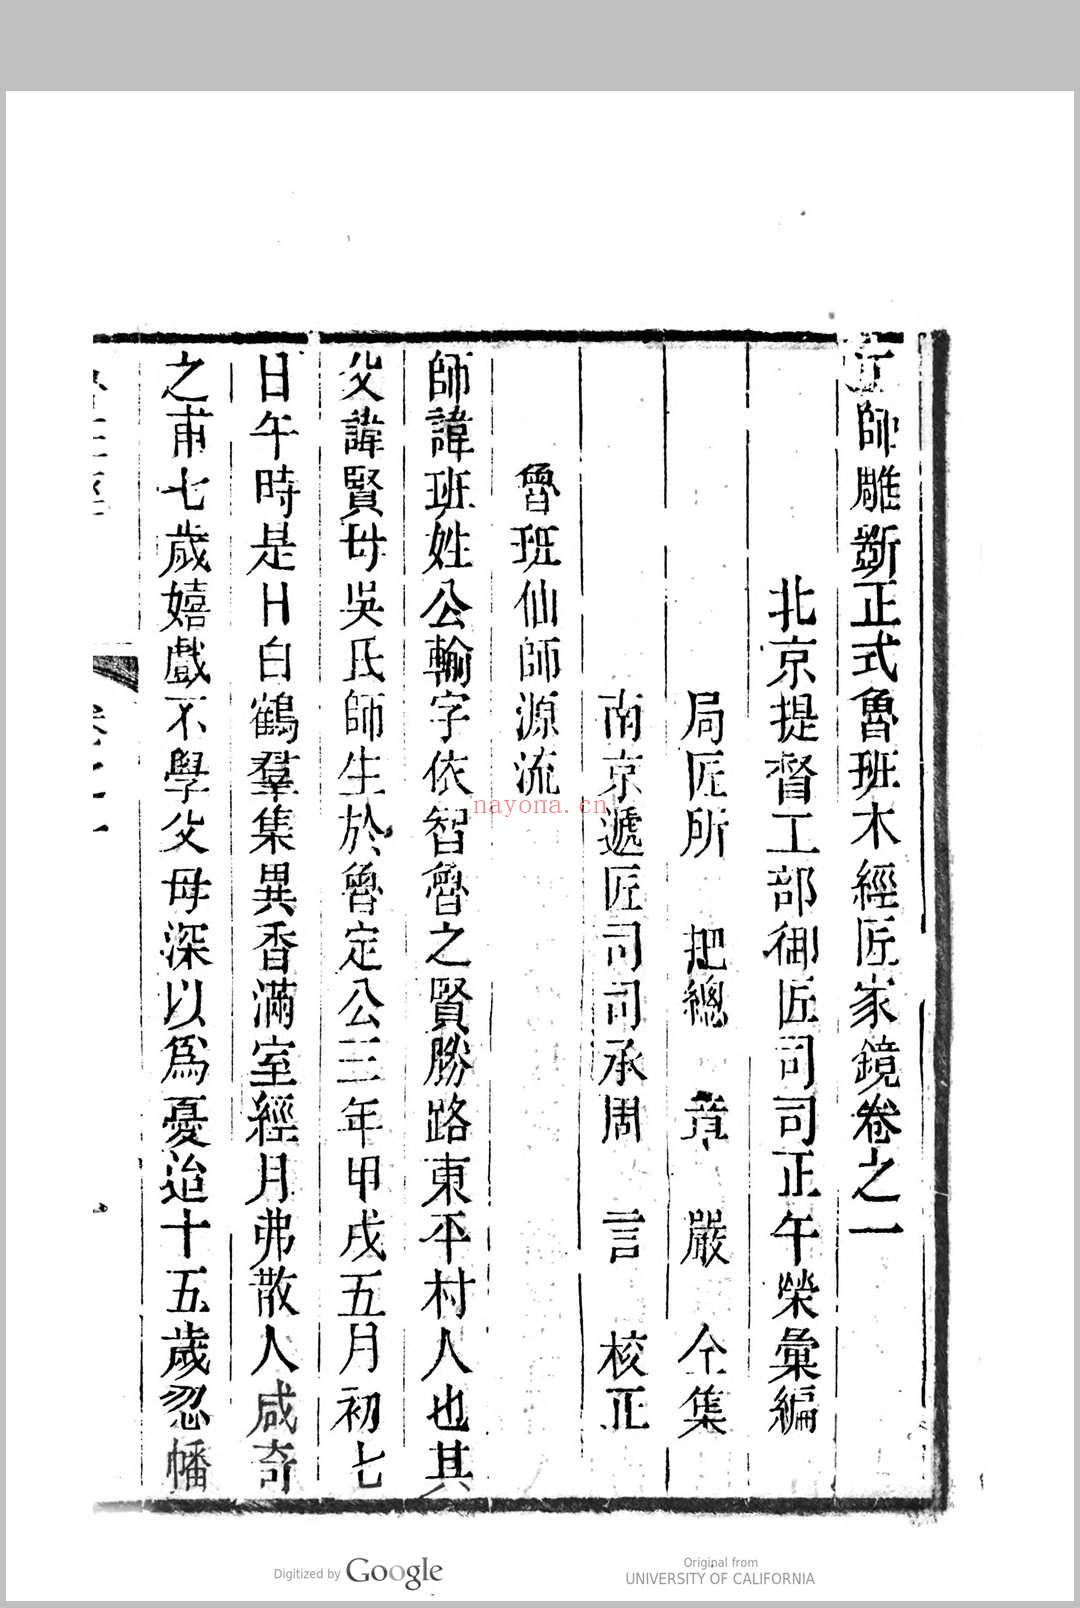 工師雕斲正式魯班木經匠家鏡卷之一
北京提督工部御匠司司正午榮彙編
局匠所 把總 章 嚴 仝集
南京遞匠司司承周 言 校正
魯班仙師源流
師諱班姓公輸字依智魯之賢勝路東平村人也其
父諱賢母吳氏師生於魯定公三年甲戌五月初七
日午時是日白鶴羣集異香滿室經月弗散人咸奇
之甫七歲嬉戲不學父母深以爲憂迨十五歲忽幡
卷之一
nayona.cn
Digitized by Google
Original from
UNIVERSITY OF CALIFORNIA